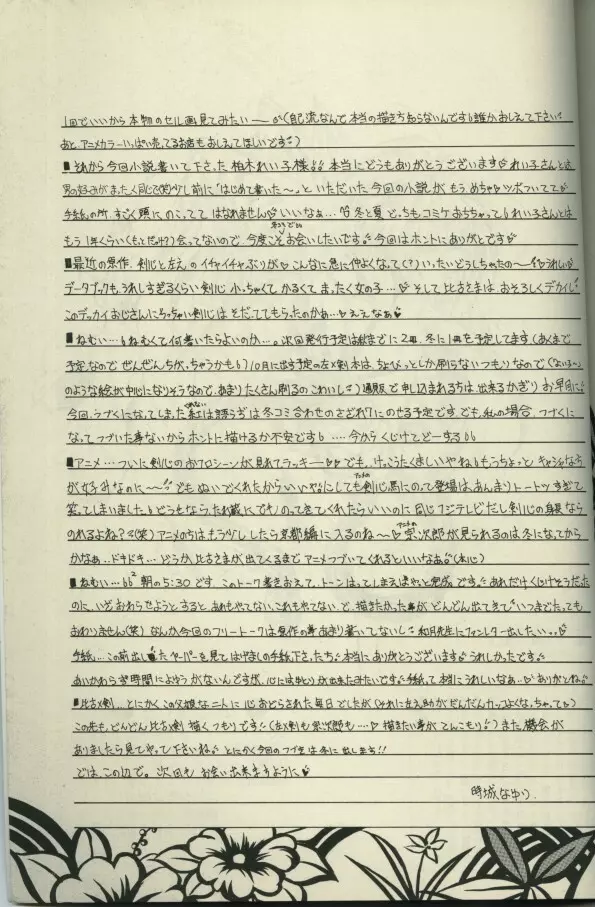 1回でいいから本物のセル画見てみたいー(自己流なんで本当の描き方知らないんです 誰かおしえて下さい
あと、アニメカラーいっぱい売ってるお店もおしえてほしいです)
■それから今回小説書いて下さった柏木れい子様 本当にどうもありがとうございます れい子さんとは
少し前に「はじめて書いた〜。」といただいた今回の小説がもうめちゃツボついてて
手紙の所、すごく頭にのこってて はなれません いいなぁ… 冬と夏どっちもコミケおちちゃって れい子さんとは
もう1年くらい(もとだっけ?)会ってないので、今度こそお会いしたいです 今回はホントにありがとです
■最近の原作、剣心と左之のイチャイチャぶりが こんなに急に仲よくなって(?)いったいどうしちゃったの〜 うれしい
データブックも、うれしすぎるくらい剣心小っちゃくてかるくてまったく女の子… そして比古さまは、おそろしくデカイし
このデッカイおじさんにちっちゃい剣心は そだててもらったのかぁ… ええなぁ
■ねむい… ねむくて何書いたらよいのか…。次回発行予定は秋までに2冊、冬に1冊を予定してます(あくまで
予定なので ぜんぜんちがっちゃうかも)10月に出す予定の左×剣本は、ちょびっとしか刷らないつもりなので
のような絵が中心になりそうなので、あまりたくさん刷るの こわいし)通販で申し込まれる方は出来るかぎりお早目に
今回、うづくになってしまった 紅は誘う は冬コミ合わせの に のせる予定です でも、私の場合、つづくに
なって つづいた事ないから ホントに描けるか不安です …今からくじけてどーする
■アニメ…ついに剣心のおフロシーンが見れてラッキー でも、けっこうたくましいやね もうちょっと キャシャな方
が女子みなのに〜 でも ぬいでくれたからいいや にしてもアニメの剣心馬にのって登場は、あんまりトートツすぎて
笑ってしまいました どうせなら にでも のってきてくれたらいいのに 同じフジテレビだし 剣心の身長なら
のれるよね?(笑)アニメのうちはもう少ししたら京都編に入るのね〜 アニメの宗次郎が見られるのは冬になってから
かなぁ…ドキドキ… どうか、比古さまが出てくるまで アニメつづいてくれるといいなぁ(本心)
■ねむい… 朝の5:30です。このトーク書きおえて、トーンはってしまえばやっと完成です。あれだけくじけそうだった
のに、いざおわらせようとすると あれもやてない、これもやてない で、描きたかった事が どんどん出てきて いつまでたっても
おわりません(笑)なんか、今回のフリートークは原作の事あまり書いてないし 和月先生にファンレター出したい…
手紙… この前出したペーパーを見て はげましの手紙下さった方 本当にありがとうございます うれしかったです
あいかわらず時間によゆうがないんですが、心にはゆとりが出来たみたいです 手紙って本当にうれしいなぁ… ありがとね
■比古×剣… とにかくこの父娘な二人に 心おどらされた毎日でしたが(それに左之助がだんだんカッコよくなっちゃって)
この先も、どんどん 比古×剣 描くつもりです(左×剣も宗次郎も… 描きたい事がてんこもり)また、機会が
ありましたら 見てやって下さいね とにかく今回のつづきは冬に出しまっす!!
では、この辺で。次回も お会い出来ますように
時城なゆり